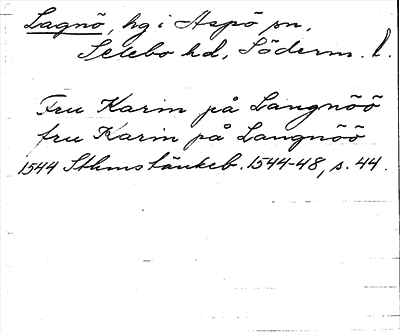 Lagnö, hg i Aspö sn,
Selebo hd, Söderm. l.
Fru Karin på Langnöö
fru Karin på Langnöö
1544 Sthms tänkeb. 1544-48, s. 44.